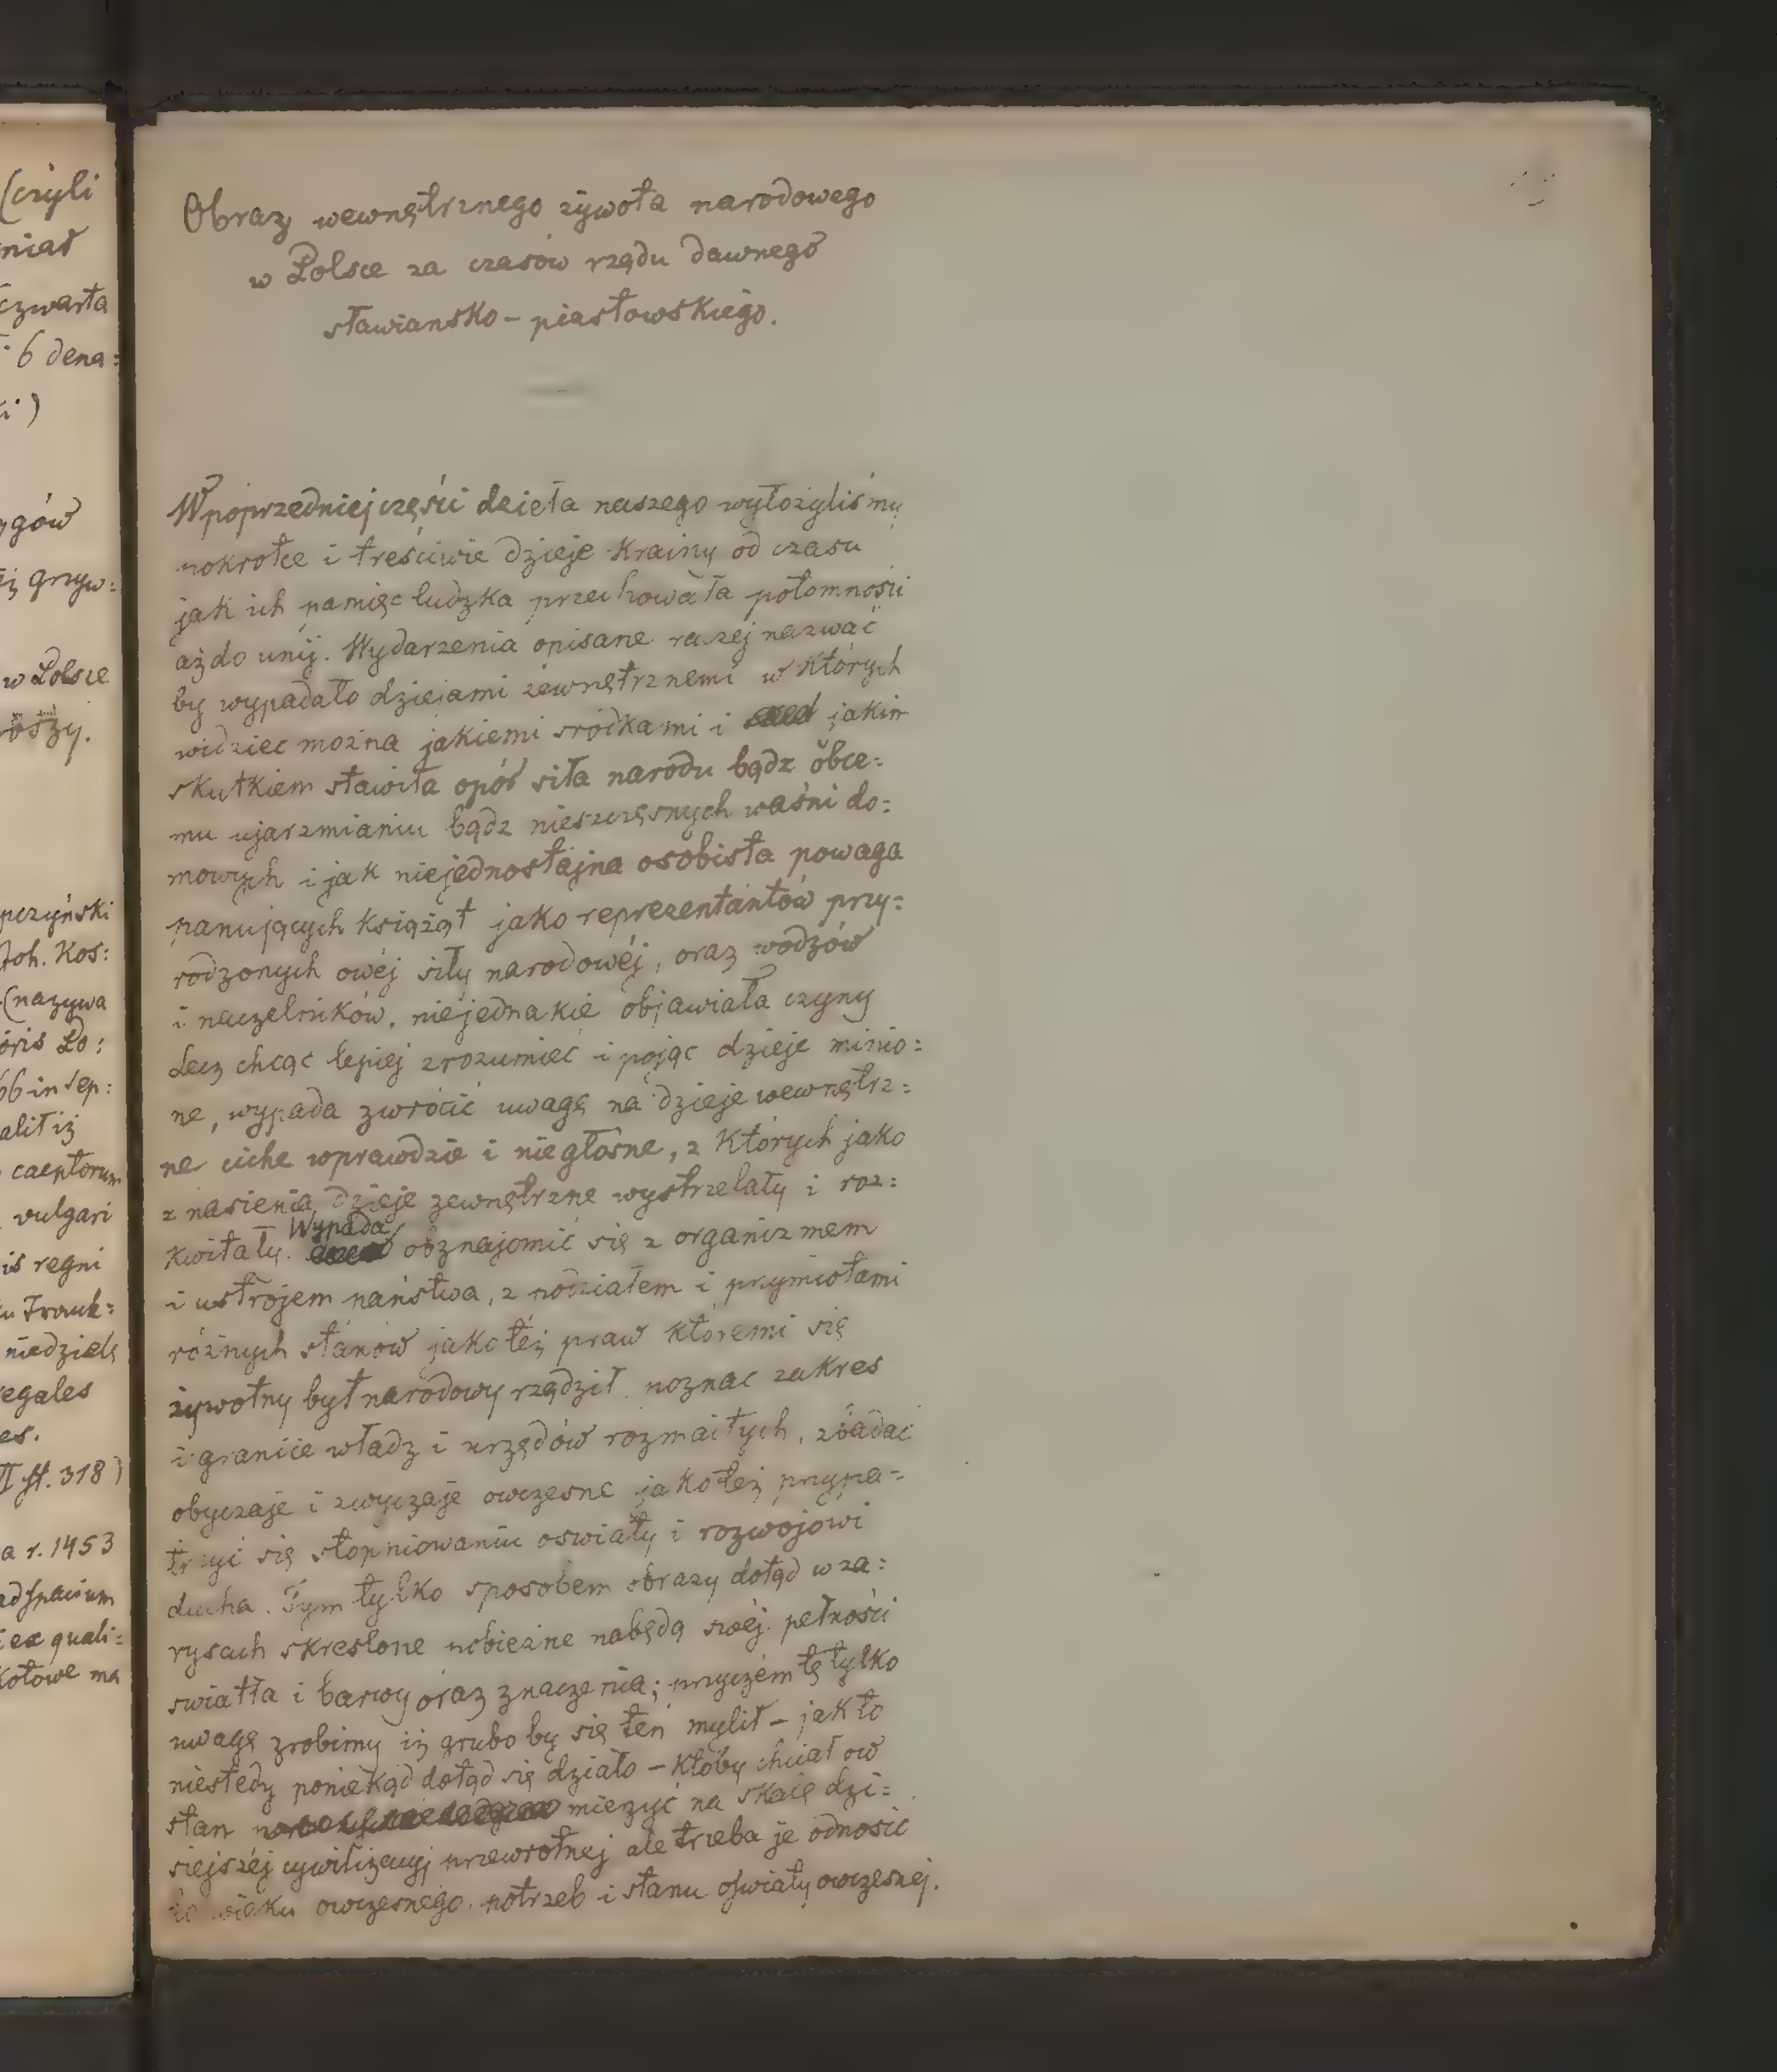 (czyli
niar
czwarta
6 dena=
ki)
ygów
grzyw=
w Polsce
oszy.
pczyński
Joh. Kos:
(nazywa
oris Po:
66 in sep:
alit iż
caeptorum
vulgari
is regni
niedzielę
regales
es.
II st. 318)
a r. 1453
ad spacium
ex quali=
kotowe ma
Obraz wewnętrznego żywota narodowego
w Polsce za czasów rządu dawnego
sławiansko - piastowskiego.
W poprzedniej części dzieła naszego wyłożyliśmy
pokrotce i treściwie dzieje krainy od czasu
jak ich pamięc ludzka przechowała potomności
aż do unij. Wydarzenia opisane raczej nazwać
by wypadało dziejami zewnętrznemi w których
widziec można jakiemi srodkami i jakim
skutkiem stawiła opór siła narodu bądz obce=
mu ujarzmianiu bądz nieszczęsnych waśni do=
mowych i jak niejednostajna osobista powaga
panujących książąt jako reprezentantów przy=
rodzonych owéj siły narodowéj, oraz wodzów
i naczelników, niejednakie objawiała czyny
Lecz chcąc lepiej zrozumieć i pojąc dzieje minio=
ne, wypada zwrócić uwagę na dzieje wewnętrz=
ne ciche wprawdzie i niegłośne, z których jako
z nasienia dzieje zewnętrzne wystrzelały i roz=
kwitały. Wypada obznajomić się z organizmem
i ustrojem państwa, z podziałem i przymiotami
różnych stanów jako też praw któremi się
żywotny byt narodowy rządził, poznac zakres
i granice władz i urzędów rozmaitych, zbadać
obyczaje i zwyczaje owczesne jako też przypa=
trzyć się stopniowaniu oswiaty i rozwojowi
ducha. Tym tylko sposobem obrazy dotąd w za=
rysach skreslone pobieżne nabędą swéj pełności
swiatła i barwy oraz znaczenia; przyczém tę tylko
uwagę zrobimy iż grubo by się ten mylił - jak to
niestedy poniekąd dotąd się działo - ktoby chciał ow
stan mierzyć na skalę dzi=
siejszéj cywilizacyj przewrotnej ale trzeba je odnosić
do wieku owczesnego, potrzeb i stanu oswiaty owczesnej.